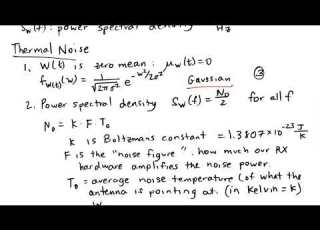 Sw(f): power spectral density Hz
Thermal Noise
1. W(t) is zero mean: μw(t)=0
fW(t)(w) = 1/√2πσ² e^-w²/2σ² Gaussian ③
2. Power spectral density Sw(f) = N₀/2 for all f
N₀ = K · F · T₀
K is Boltzmans constant = 1.3807×10⁻²³ J/K
F is the "noise figure". how much our RX
hardware amplifies the noise power.
T₀ = average noise temperature (of what the
antenna is pointing at. (in Kelvin = K)